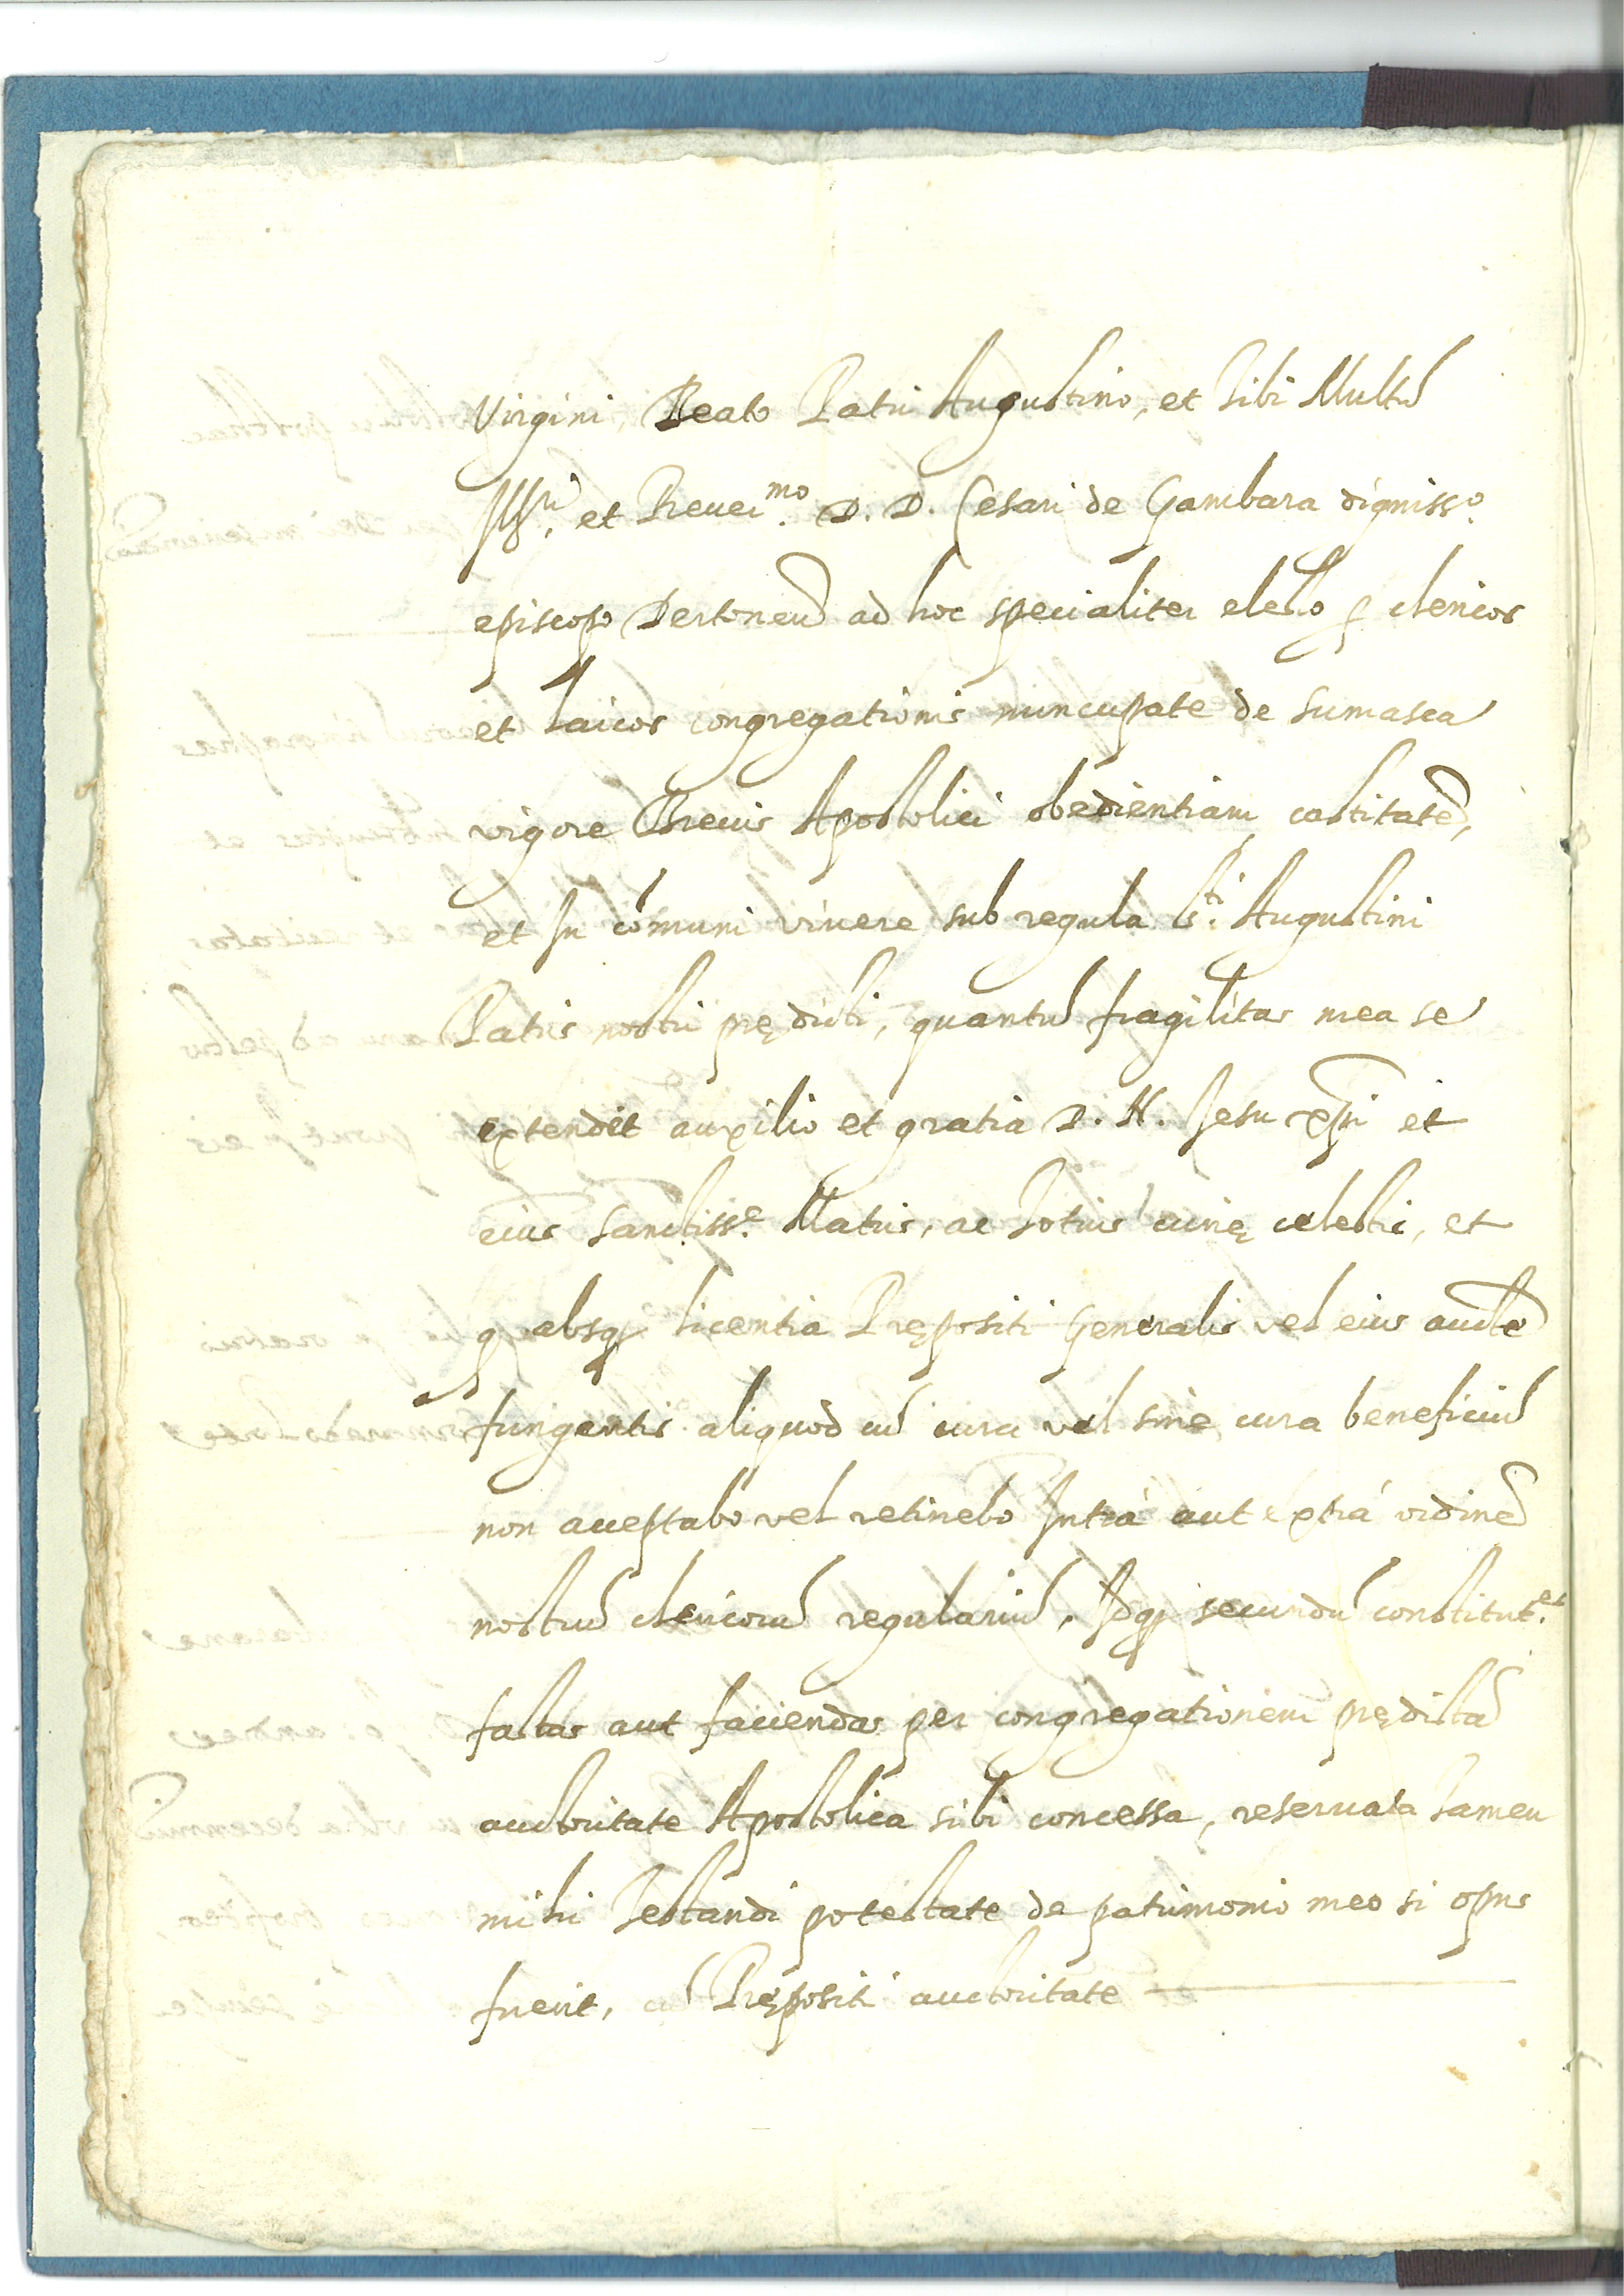 Virgini, Beato Patri Augustino, et Tibi Multũ
Ill.ri et Reuer.mo D. D. Cesari de Gambara digniss.o
episcopo Dertoneñ ad hoc specialiter electo p clericos
et laicos congregationis nuncupate de Sumasca
vigore Breuis Apostolici obedientiam castitatẽ,
et In cõmuni viuere sub regula S.ti Augustini
Patris nostri prędicti, quantũ fragilitas mea se
extendit auxilio et gratia D. N. Jesu xp̃i et
eius sanctiss.e Matris, ac Totius curię celestis, et
q absq; licentia Prępositi Generalis vel eius auctẽ
fungentis aliquod cũ cura vel sine cura beneficiũ
non acceptabo vel retinebo Intrà aut extrà ordinẽ
nostrũ clericorũ regulariũ, Idq; secundũ constitut.es
factas aut faciendas per congregationem prędictã
auctoritate Apostolica sibi concessa, reseruata Tamen
mihi Testandi potestate de patrimonio meo si opus
fuerit, cũ Prępositi auctoritate